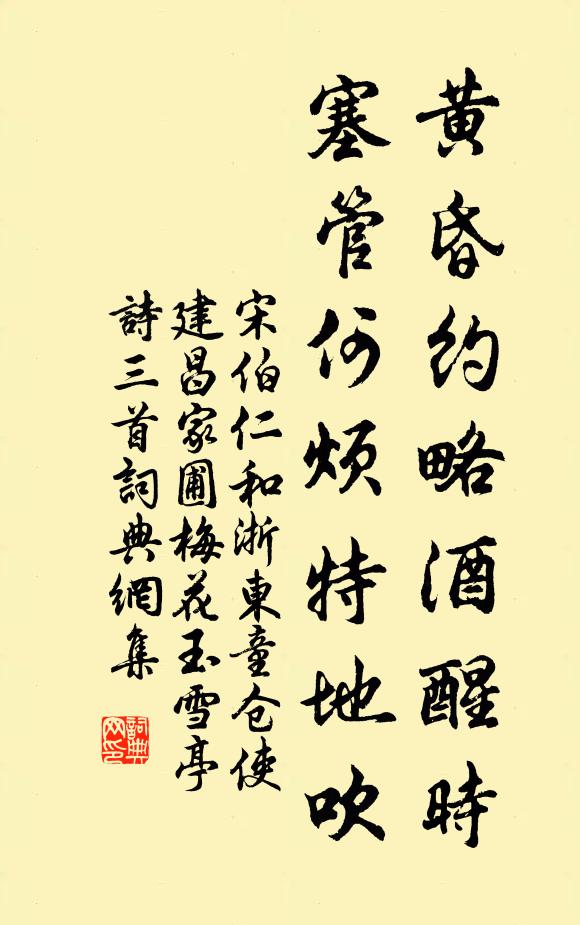 黃昏約略酒醒時
塞管何煩特地吹
宋伯仁和浙東童仓使
建昌家圃梅花玉雪亭
詩三首詞典網集
詞典网印